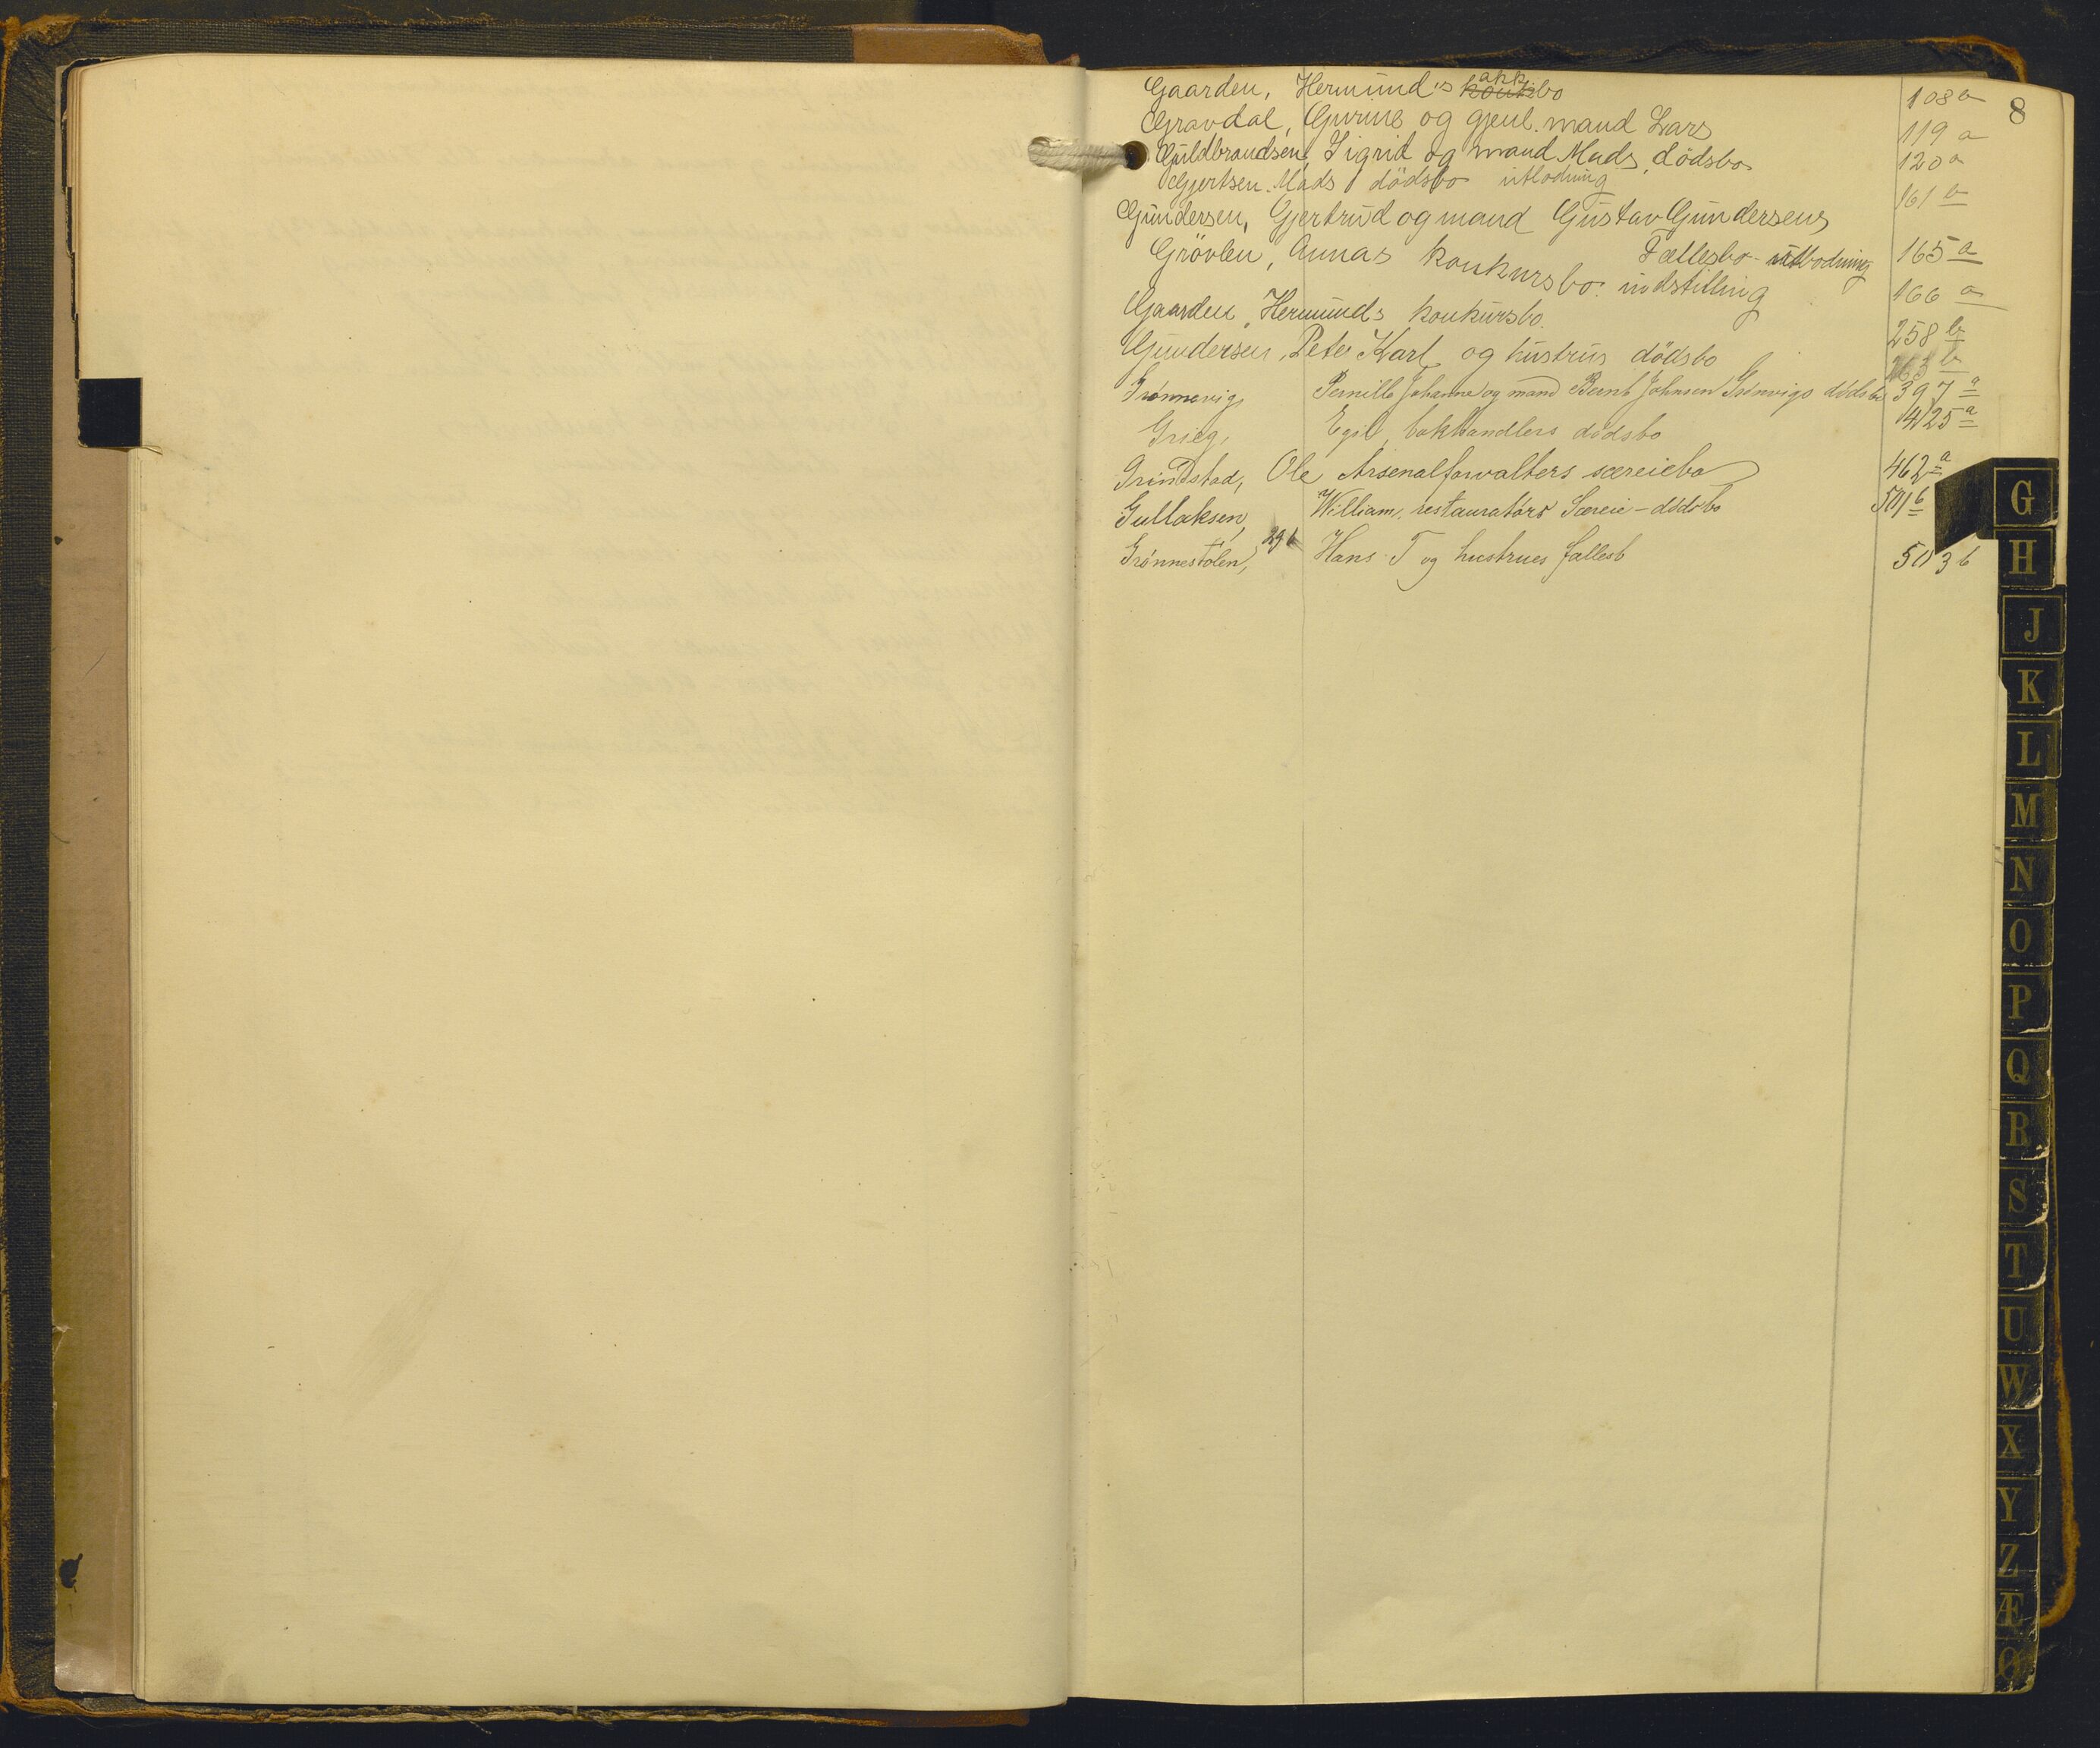 8
Gaarden, Hermund's konk. akk.bo 108 b
Gravdal, Gurine og gjenl. mand Lars 119 a
Guldbrandsen, Sigrid og mand Mads, dödsbo 120 a
Gjertsen. Mads dödsbo utlodning 161 b
Gundersen, Gjertrud og mand Gustav Gundersens
Fællesbo - utlodning 165 a
Grövlen, Annas konkursbo: indstilling 166 a
Gaarden, Hermunds konkursbo. 258 b
Gundersen, Peter Karl og hustrus dödsbo 263 b
Grønnevig, Pernille Johanne og mand Bernt Johnsen Grønvigs dødsbo 397 a
Grieg, Egil, bokhandlers dødsbo 425 a
Grindstad, Ole Arsenalforvalters særeiebo 462 a
Gullaksen, William, restauratørs Særeie-dødsbo 501 b
Grønnestølen, 291 Hans T og hustrues fællesb 503 b
G
H
J
K
L
M
N
O
P
Q
R
S
T
U
W
X
Y
Z
Æ
Ø